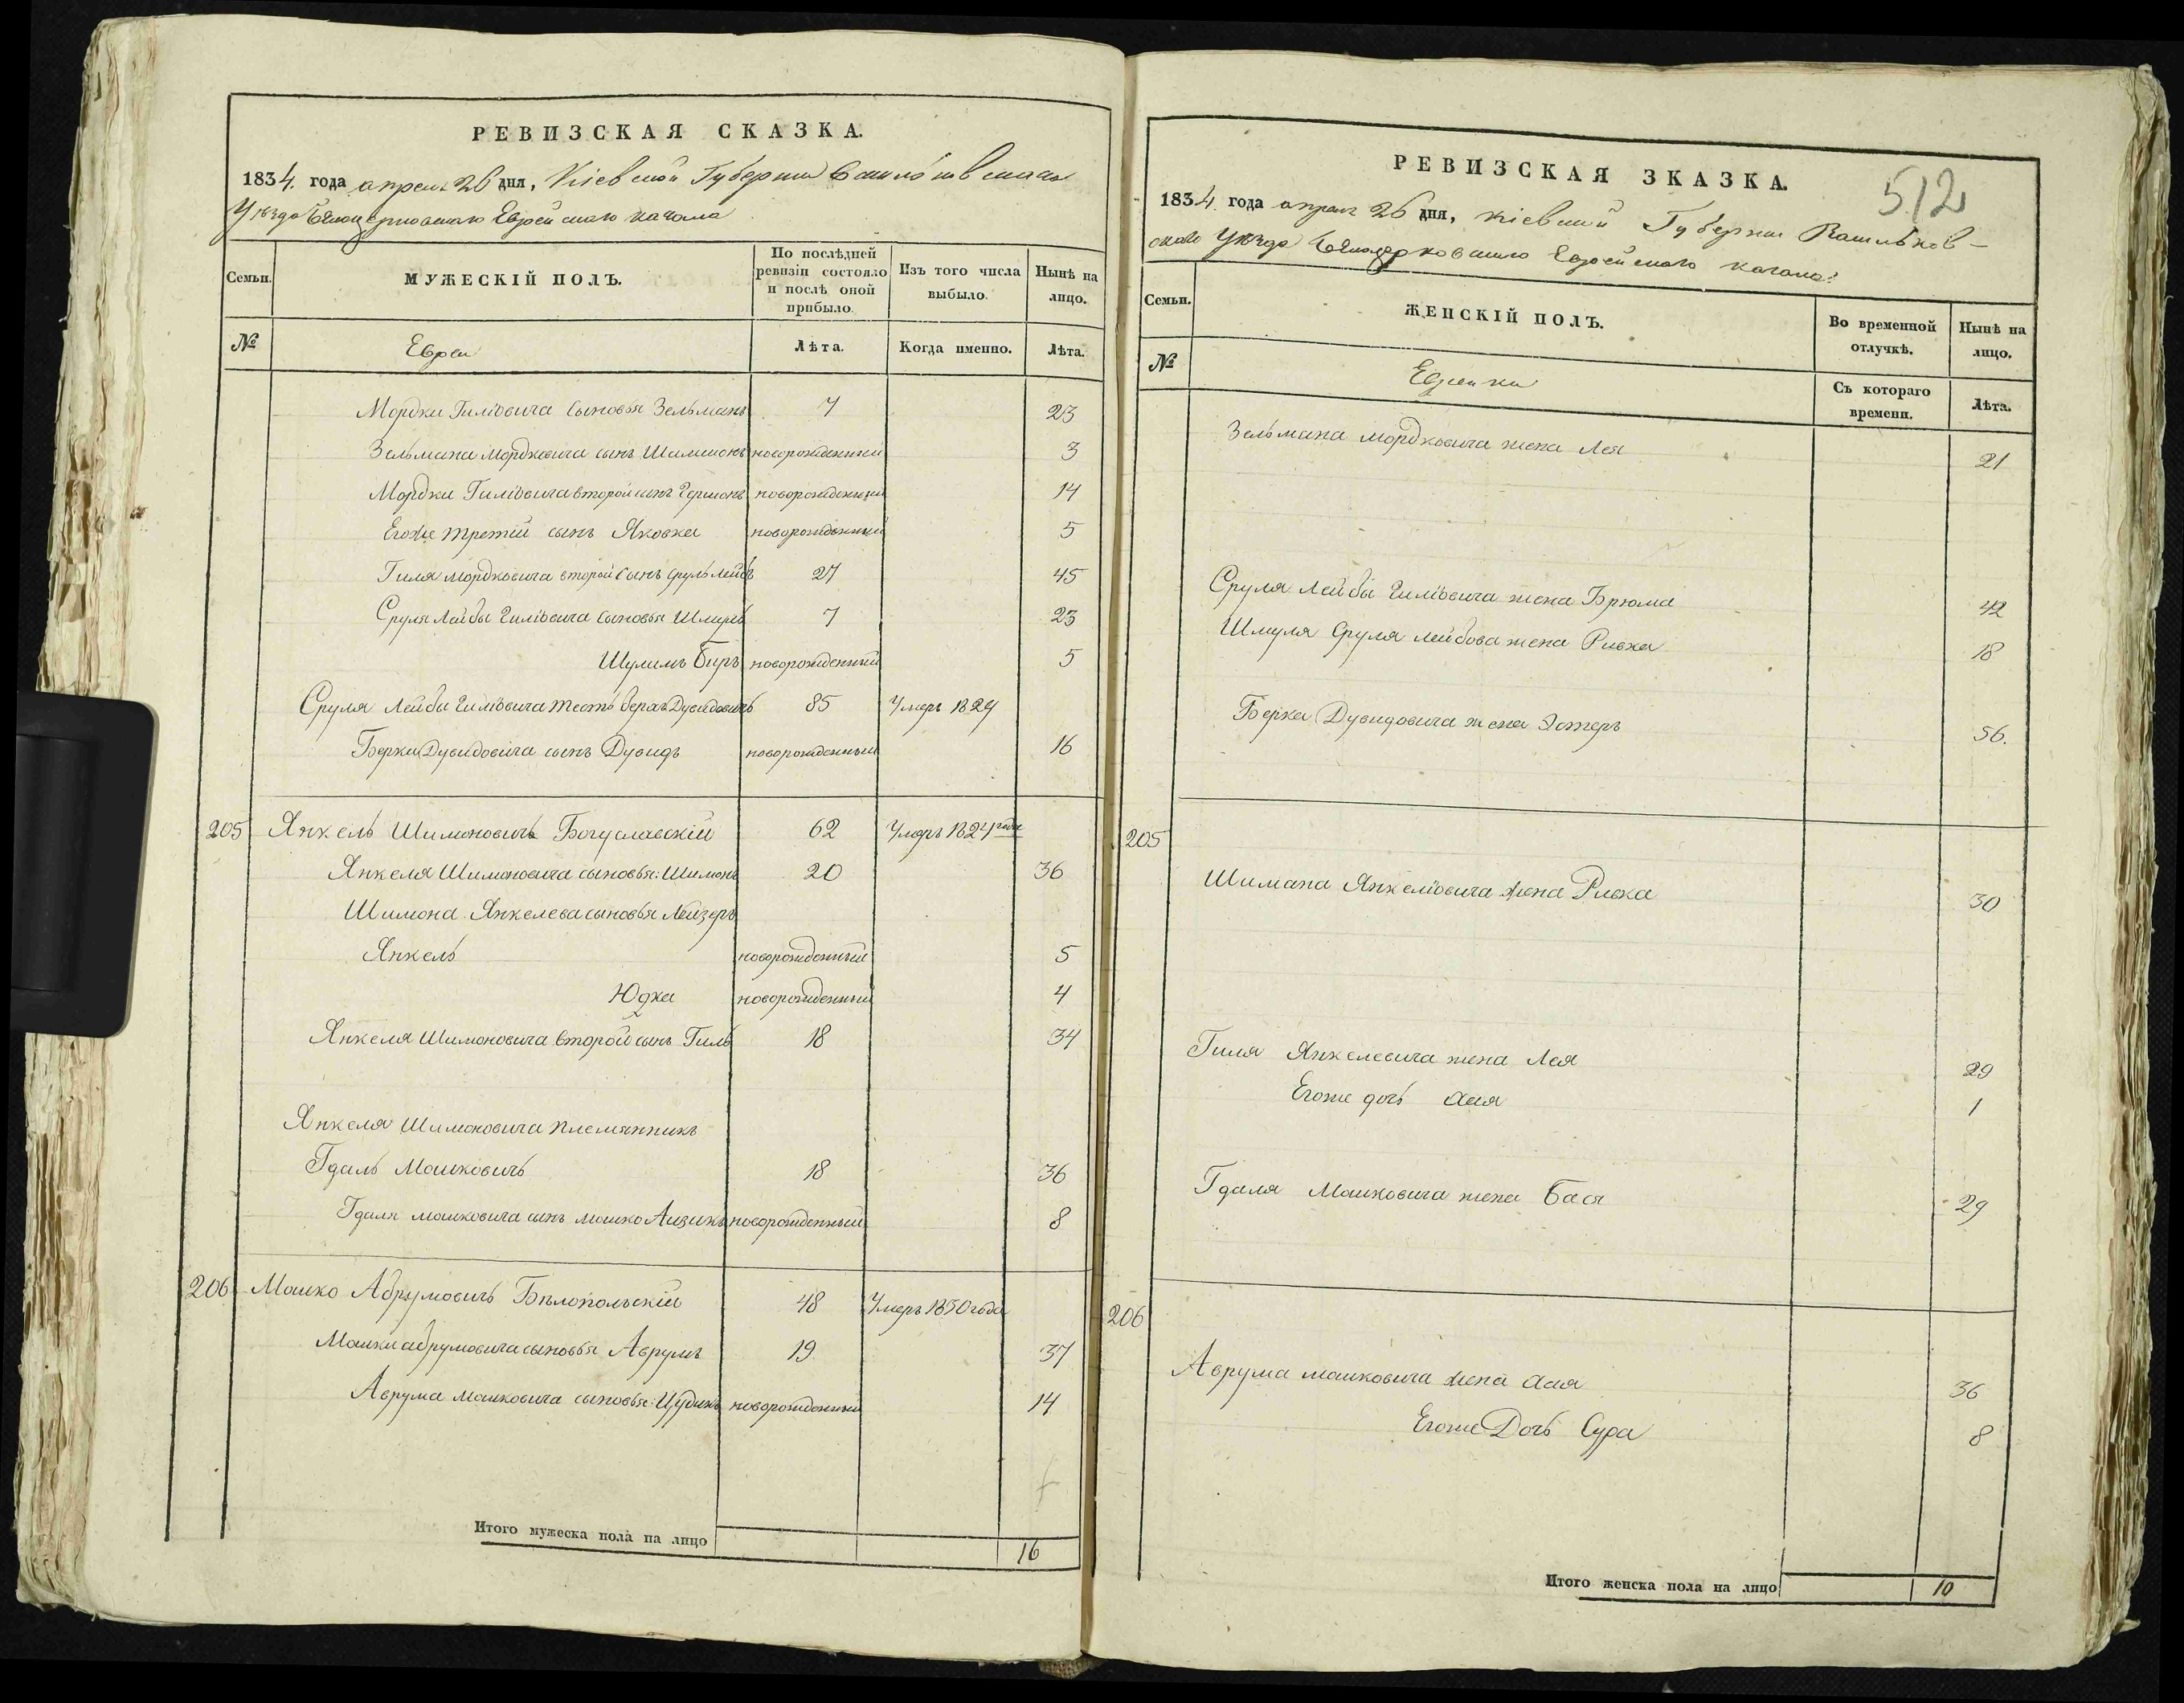 РЕВИЗСКАЯ СКАЗКА.
1834. года апреля 26 дня, Кіевской Губерніи Василковскаго
Уѣзда Бѣлоцерковскаго Еврейскаго кагала
Семьи.
МУЖЕСКІЙ ПОЛЪ.
По послѣдней ревизіи состояло и послѣ оной прибыло.
Изъ того числа выбыло.
Нынѣ на лицо.
№
Евреи
Лѣта.
Когда именно.
Лѣта.
Мордки Гилiовича сыновья Зельманъ 7 23
Зельмана Мордковича сынъ Шимшонъ новорожденный 3
Мордки Гилiовича второй сынъ Гершонъ новорожденный 14
Егоже третій сынъ Яковка новорожденный 5
Гиля Мордковича второй сынъ Сруль Лейбъ 27 45
Сруля Лейбы Гилiовича сыновья Шмуль 7 23
Шулимъ Биръ новорожденный 5
Сруля Лейбы Гилiовича тесть Берко Дувидовичъ 85 Умеръ 1829
Берки Дувидовича сынъ Дувидъ новорожденный 16
205 Янкель Шимоновичъ Богуславскій 62 Умеръ 1824 года
Янкеля Шимоновича сыновья: Шимонъ 20 36
Шимона Янкелева сыновья Лейзеръ
Янкель новорожденный 5
Юдка новорожденный 4
Янкеля Шимоновича второй сынъ Гиль 18 34
Янкеля Шимоновича племянникъ
Гдаль Мошковичъ 18 36
Гдаля мошковича сынъ мошко Аизикъ новорожденный 8
206 Мошко Абрумовичъ Бѣлопольскій 48 Умеръ 1830 года
Мошки абрумовича сыновья Аврумъ 19 37
Аврума мошковича сыновья: Цудикъ новорожденный 14
Итого мужеска пола на лицо 16
РЕВИЗСКАЯ ЗКАЗКА.
512
1834. года апреля 26 дня, Кіевской Губерніи Васильков-
скаго Уѣзда Бѣлоцерковскаго Еврейскаго кагала
Семьи.
ЖЕНСКІЙ ПОЛЪ.
Во временной отлучкѣ.
Нынѣ на лицо.
№
Еврейки
Съ котораго времени.
Лѣта.
Зельмана мордковича жена Лея 21
Сруля Лейбы Гилiовича жена Брюма 42
Шмуля Сруля лейбова жена Ривка 18
Берка Дувидовича жена Эстеръ 56.
205
Шимана Янкелiовича жена Ривка 30
Гиля Янкелевича жена Лея 29
Егоже дочь Хая 1
Гдаля Мошковича жена Бася 29
206
Аврума мошковича жена Хая 36
Егоже Дочь Сура 8
Итого женска пола на лицо 10